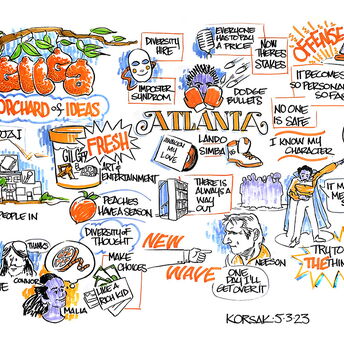 GILGA
ORCHARD of IDEAS
DIVERSITY
HIRE
IMPOSTER
SYNDROM
EVERYONE
HAS TO PAY
A PRICE
NOW
THERE'S
STAKES
OFFENSE
IT BECOMES
SO PERSONAL
SO FA
DODGE
BULLETS
ATLANTA
NO ONE
IS SAFE
I KNOW MY
CHARACTER
FRESH
GILGA
ART &
ENTERTAINMENT
AWAKEN
MY
LOVE
LANDO
SIMBA
PEOPLE IN
PEACHES
HAVE A SEASON
THERE IS
ALWAYS A
WAY OUT
IT M
ME
DIVERSITY of
THOUGHT
MAKE
CHOICES
LIKE A
RICH KID
THANKS
CONNOR
MALIA
NEW
WAVE
NEESON
ONE
DAY I'LL
GET OVER IT
TRY TO
THE THIN
KORSAK·5·3·23